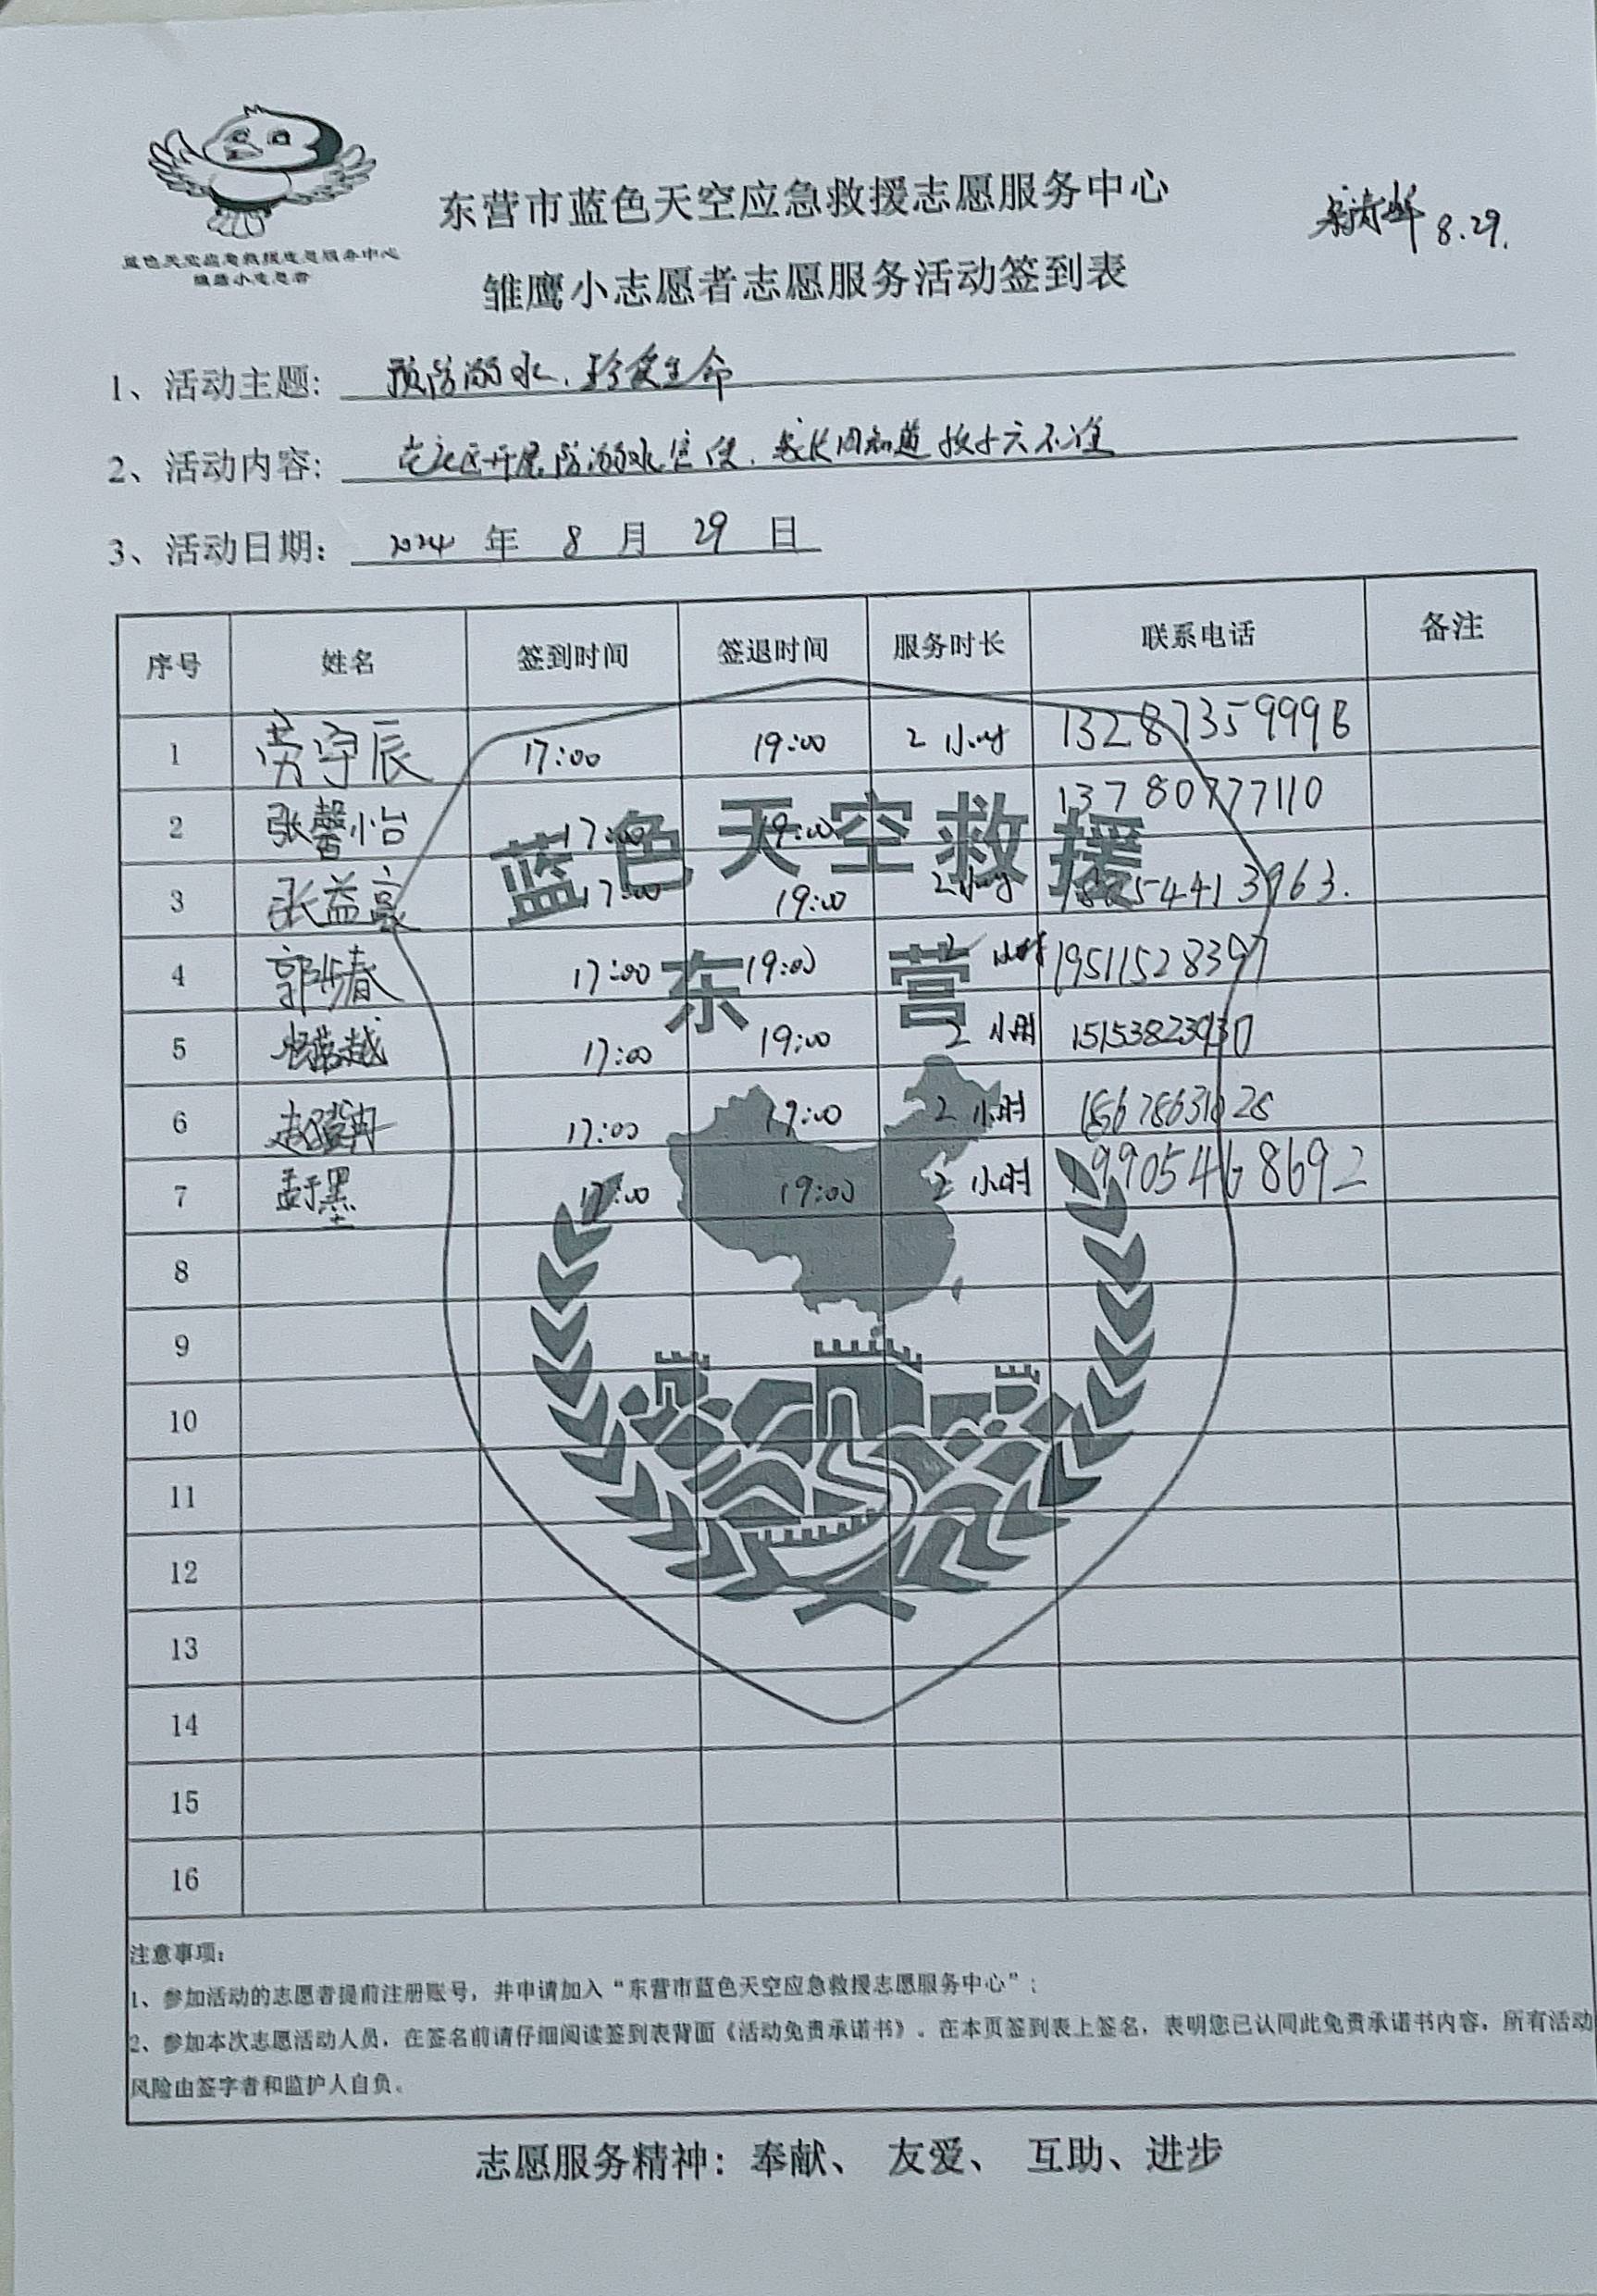 蓝色天空应急救援志愿服务中心
雏鹰小志愿者
东营市蓝色天空应急救援志愿服务中心
8.29.
雏鹰小志愿者志愿服务活动签到表
1、活动主题: 预防溺水、珍爱生命
2、活动内容: 在社区开展防溺水宣传、家长周知道孩子六不准
3、活动日期: 2024 年 8 月 29 日
序号 姓名 签到时间 签退时间 服务时长 联系电话 备注
1 劳宇辰 17:00 19:00 2 小时
2 张馨怡 17:00 19:00 13780777110
3 张益豪 17:00 19:00 2小时
4 郭 春 17:00 19:00 2 小时 19511528397
5 17:00 19:00 2 小时
6 赵 冉 17:00 19:00 2 小时
7 孟于墨 17:00 19:00 2 小时 19905468692
8
9
10
11
12
13
14
15
16
蓝色天空救援
东营
注意事项:
1、参加活动的志愿者提前注册账号，并申请加入“东营市蓝色天空应急救援志愿服务中心”;
2、参加本次志愿活动人员，在签名前请仔细阅读签到表背面《活动免责承诺书》。在本页签到表上签名，表明您已认同此免责承诺书内容，所有活动
风险由签字者和监护人自负。
志愿服务精神: 奉献、 友爱、 互助、进步